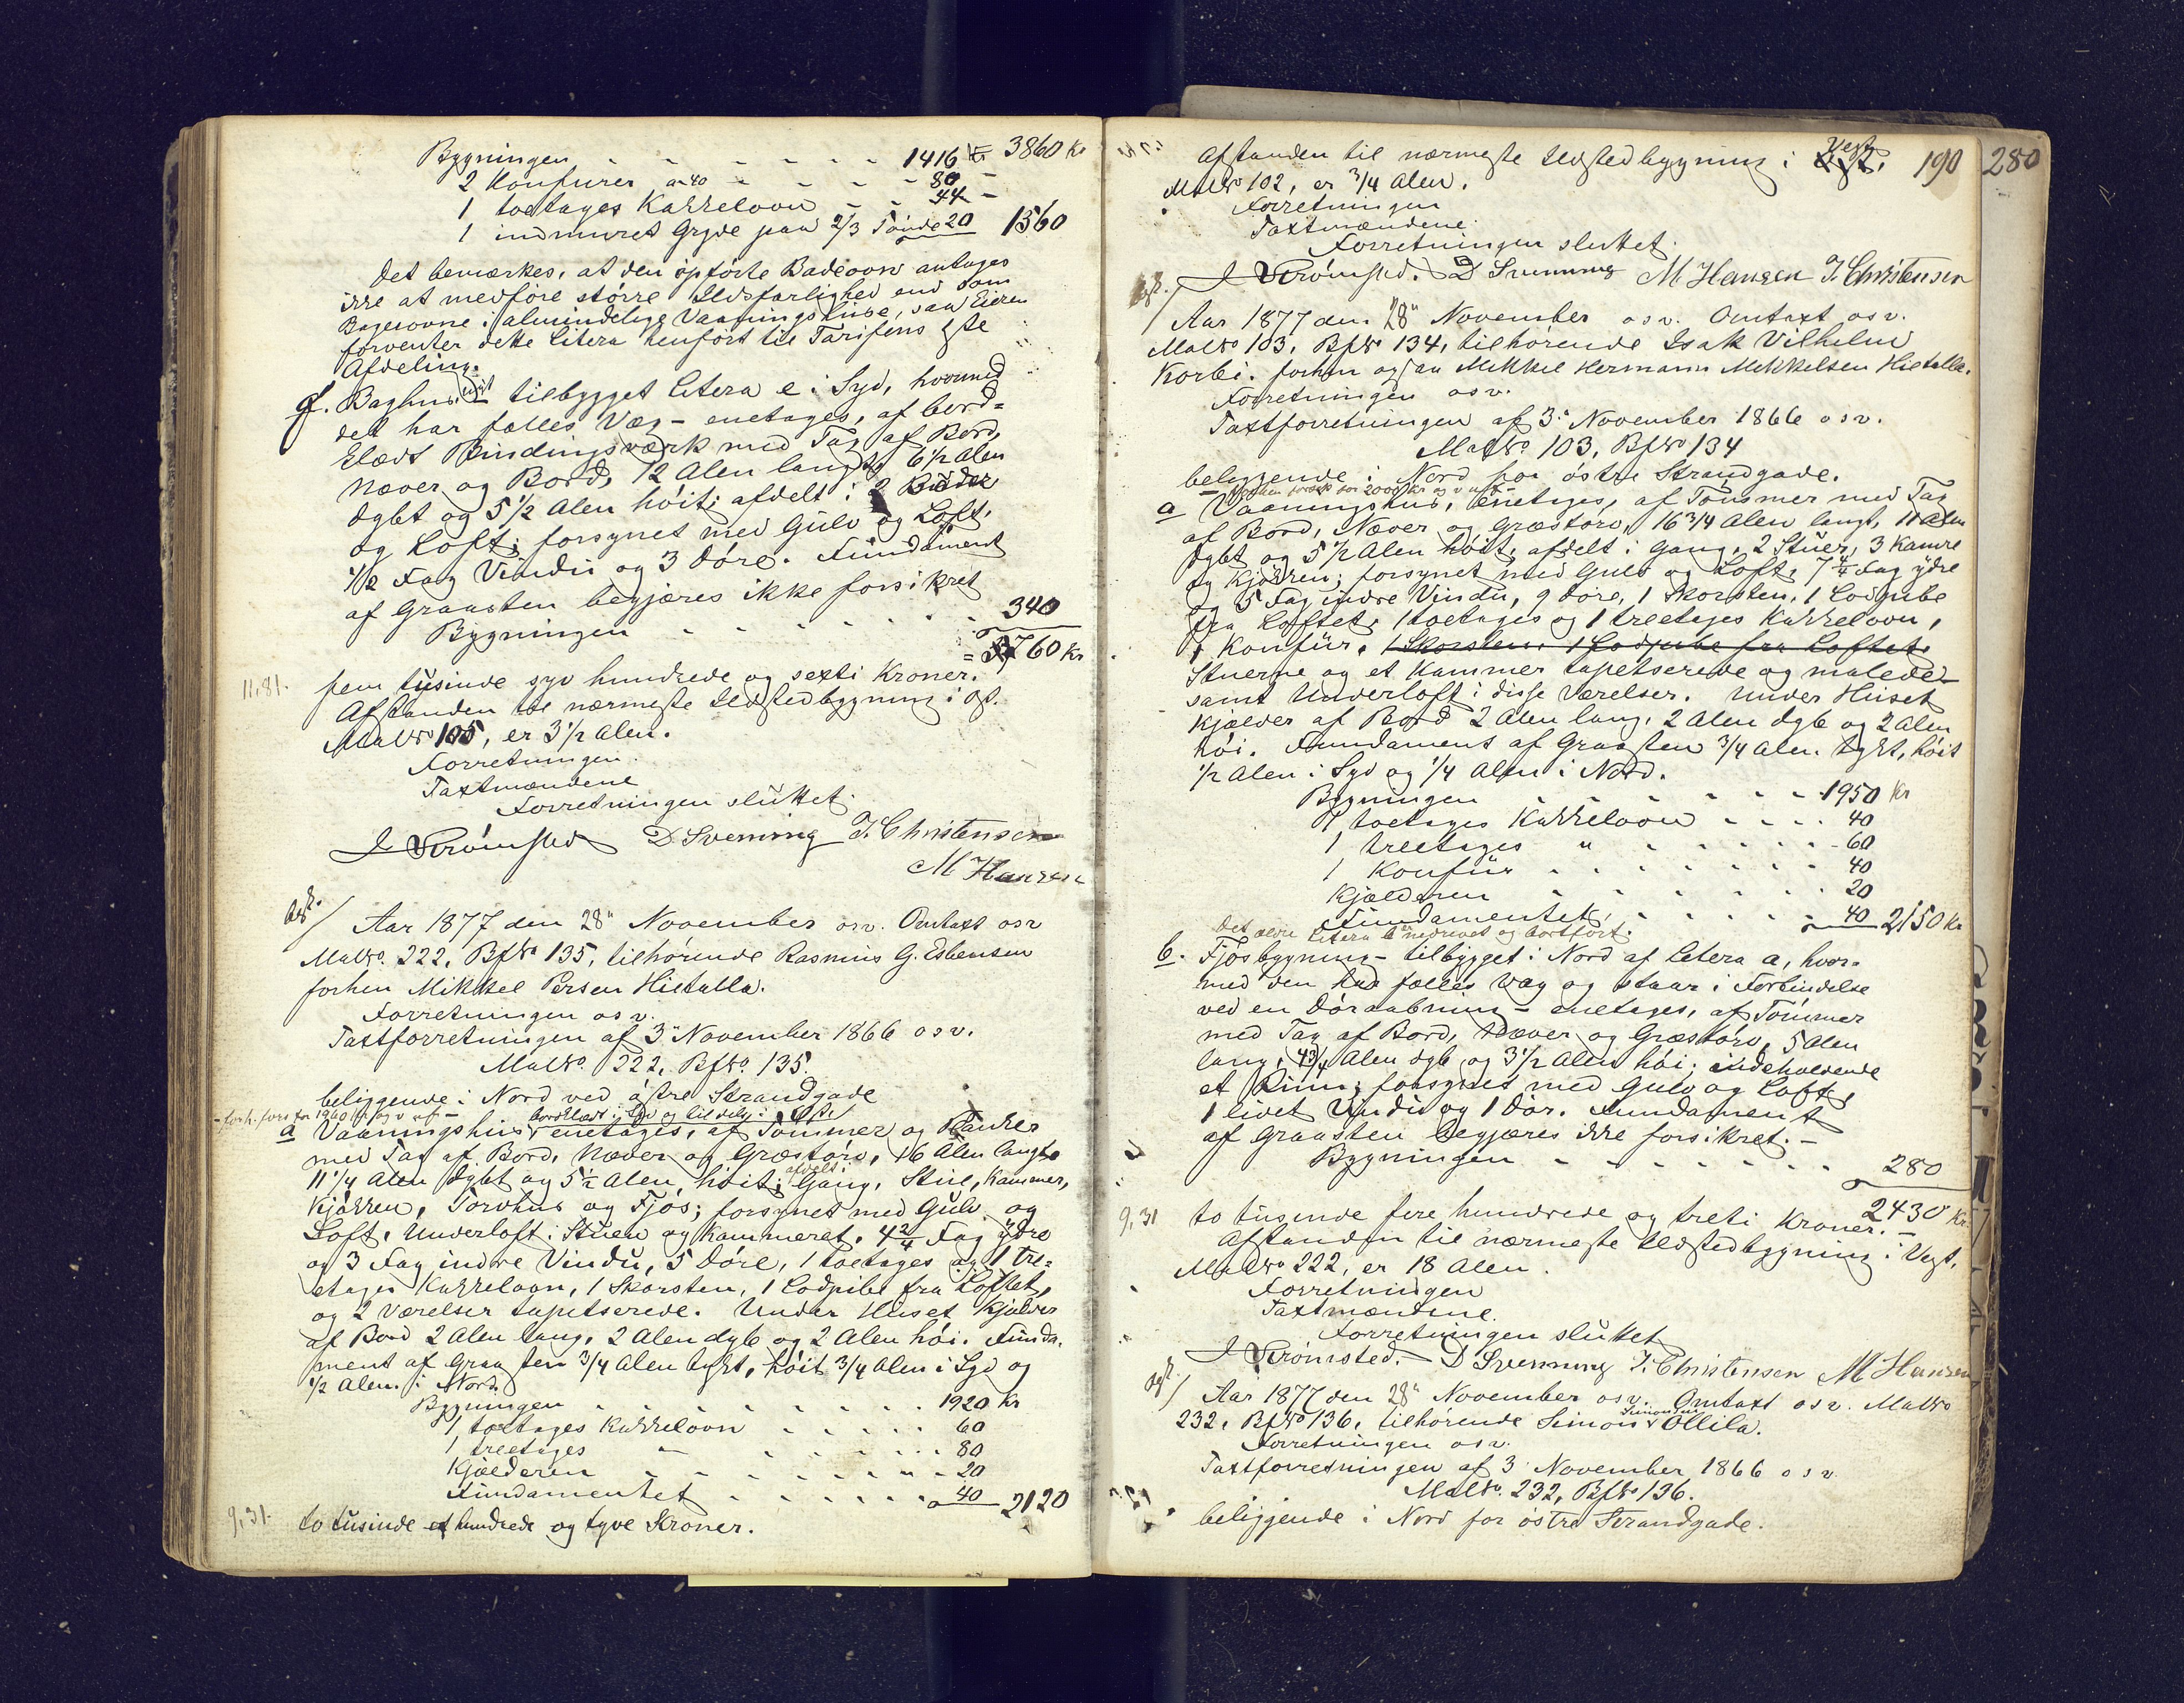 Bygningen - - - - - - 1416 Kr 3860 Kr
2 Konfurer a 40 - - - - 80 -
1 toetages Kakkelovn - - 44 -
1 indmuret Gryde paa 2/3 Tønde 20 1560
Det bemærkes, at den opførte Badeovn antages
ikke at medføre større Ildsfarlighed end som
Bagerovne i almindelige Vaaningshuse, saa Eieren
forventer dette Litera henført til Tarifens
Afdeling.
f. Baghus, tilbygget Litera e i Syd, hvormed
det har fælles Væg - enetages, af bord-
klædt Bindingsværk med Tag af Bord,
Næver og Bord, 12 Alen langt, 6 1/2 Alen
dybt og 5 1/2 Alen høit; afdelt i 2 Boder
og Loft; forsynet med Gulv og Loft,
4/2 Fag Vindu og 3 Døre. Fundament
af Graasten begjæres ikke forsikret
Bygningen - - - - - - - 340
= 5760 Kr
11,81. fem tusinde syv hundrede og sexti Kroner.
Afstanden til nærmeste Ildstedbygning i Øst.
Mat No 105, er 3 1/2 Alen.
Forretningen.
Taxtmændene
Forretningen sluttet.
J Strømsted D Svenning J. Christensen
M Hansen
Aar 1877 den 28" November osv. Omtaxt osv
Mat No. 222, Bf No 135, tilhørende Rasmus G. Esbensen
forhen Mikkel Persen Hietalla.
Forretningen osv.
Taxtforretningen af 3" November 1866 osv.
Mat No. 222, Bf No. 135.
beliggende i Nord ved østre Strandgade
- forh. fors. for 1960 Kr og v af - bordklædt i Syd og tildels i Øst,
a Vaaningshus, enetages, af Tømmer og Planker
med Tag af Bord, Næver og Græstørv, 16 Alen langt,
11 1/4 Alen dybt og 5 1/2 Alen høit; afdelt i Gang, Stue, Kammer,
Kjøkken, Torvhus og Fjøs; forsynet med Gulv og
Loft, Underloft i Stuen og Kammeret, 4 2/4 Fag ydre
og 3 Fag indre Vindu, 5 Døre, 1 toetages og 1 tre-
etages Kakkelovn, 1 Skorsten, 1 Lodpibe fra Loftet,
og 2 Værelser tapetserede. Under Huset Kjelder
af Bord 2 Alen lang, 2 Alen dyb og 2 Alen høi. Funda-
ment af Graasten 3/4 Alen tykt, høit 3/4 Alen i Syd og
1/2 Alen i Nord.
Bygningen - - - - - - 1920 Kr
1 toetages Kakkelovn - - - - 60
1 treetages " - - - - 80
Kjelderen - - - - - - - 20
Fundamentet - - - - - - 40 2120
9,31. to tusinde et hundrede og tyve Kroner.
190 280
Afstanden til nærmeste Ildstedbygning i Vest,
Mat No 102, er 3/4 Alen.
Forretningen
Taxtmændene.
Forretningen sluttet.
J Strømsted. D Svenning M Hansen J. Christensen
Aar 1877 den 28" November osv. Omtaxt osv.
Mat No 103, Bf No 134, tilhørende Isak Vilhelm
Korbi. forhen ogsaa Mikkel Hermann Mikkelsen Hietalla.
Forretningen osv.
Taxtforretningen af 3" November 1866 osv.
Mat No 103, Bf No 134
beliggende i Nord for østre Strandgade.
- forhen forsik for 2000 Kr og v af -
a Vaaningshus, enetages, af Tømmer med Tag
af Bord, Næver og Græstørv, 16 3/4 Alen langt, 11 Alen
dybt og 5 1/2 Alen høit, afdelt i Gang, 2 Stuer, 3 Kamre
og Kjøkken; forsynet med Gulv og Loft, 7 1/4 Fag ydre
og 5 Fag indre Vindu, 9 Døre, 1 Skorsten, 1 Lodpibe
fra Loftet, 1 toetages og 1 treetages Kakkelovn,
1 Konfur, 1 Skorsten, 1 Lodpibe fra Loftet.
Stuerne og et Kammer tapetserede og malede -
samt Underloft i disse Værelser. Under Huset
Kjælder af Bord 2 Alen lang, 2 Alen dyb og 2 Alen
høi. Fundament af Graasten 3/4 Alen tykt, høit
1/2 Alen i Syd og 1/4 Alen i Nord.
Bygningen - - - - - - 1950 Kr
1 toetages Kakkelovn - - - - 40
1 treetages " - - - - - - 60
1 Konfur - - - - - - - 40
Kjælderen - - - - - - 20
Fundamentet, - - - - - - 40 2150 Kr
Det ældre Litera b er nedrevet og bortført.
b. Fjøsbygning - tilbygget i Nord af Litera a, hvor-
med den har fælles Væg og staar i Forbindelse
ved en Døraabning - enetages, af Tømmer
med Tag af Bord, Næver og Græstørv, 5 Alen
lang, 4 3/4 Alen dyb og 3 1/2 Alen høi; indeholdende
et Rum; forsynet med Gulv og Loft,
1 lidet Vindu og 1 Dør. Fundament
af Graasten begjæres ikke forsikret. -
Bygningen - - - - - - - 280
2430 Kr.
9,31 to tusinde fire hundrede og treti Kroner. -
Afstanden til nærmeste Ildstedbygning i Vest,
Mat No 222, er 18 Alen.
Forretningen
Taxtmændene.
Forretningen sluttet
J Strømsted. D Svenning J. Christensen M Hansen
Aar 1877 den 28" November osv. Omtaxt osv. Mat No
232, Bf No 136, tilhørende Simon Simonsen Ollila.
Forretningen osv.
Taxtforretningen af 3 November 1866 osv
Mat No. 232, Bf No 136.
beliggende i Nord for østre Strandgade.